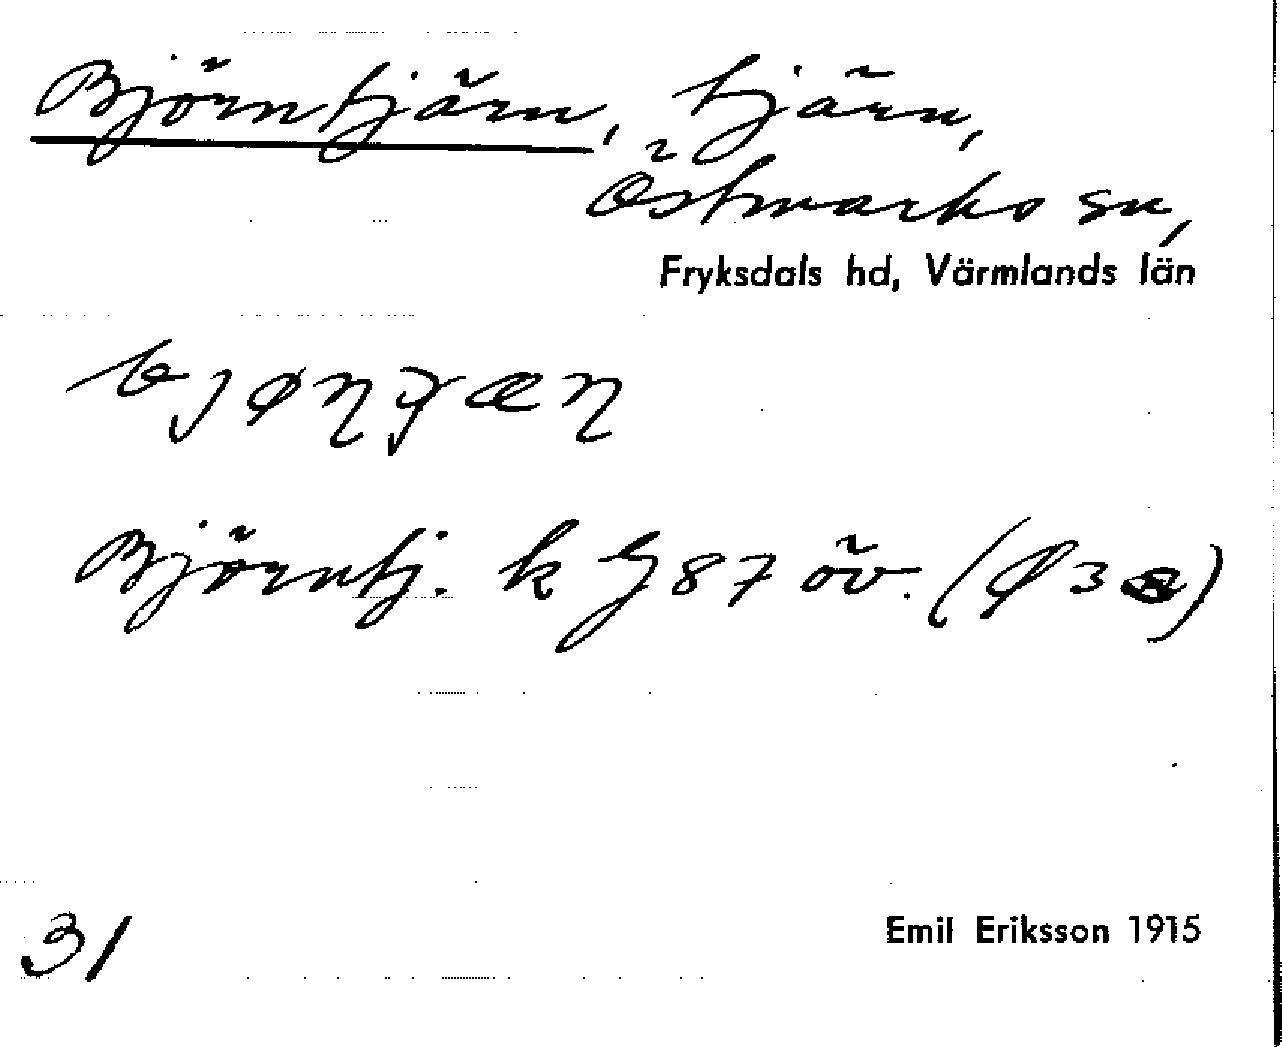 Björntjärn, tjärn,
Östmarks sn,
Fryksdals hd, Värmlands län
Björntj. k G 87 öv. (Ø 3 a)
31
Emil Eriksson 1915